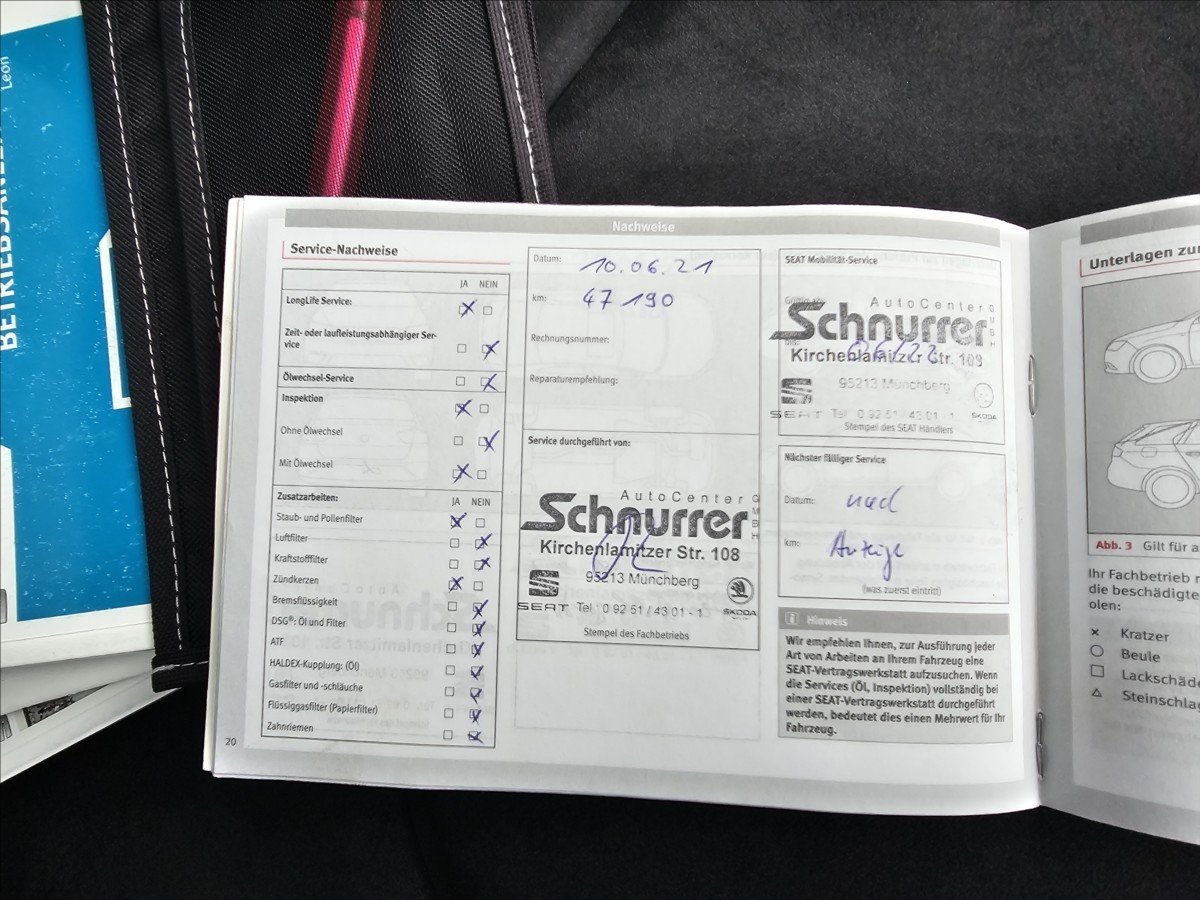 Leon
BETRIEBSANLE
Nachweise
Service-Nachweise
JA NEIN
LongLife Service:
Zeit- oder laufleistungsabhängiger Ser-
vice
Ölwechsel-Service
Inspektion
Ohne Ölwechsel
Mit Ölwechsel
Zusatzarbeiten: JA NEIN
Staub- und Pollenfilter
Luftfilter
Kraftstofffilter
Zündkerzen
Bremsflüssigkeit
DSG®: Öl und Filter
ATF
HALDEX-Kupplung: (Öl)
Gasfilter und -schläuche
Flüssiggasfilter (Papierfilter)
Zahnriemen
20
Datum: 10.06.21
km: 47 190
Rechnungsnummer:
Reparaturempfehlung:
Service durchgeführt von:
AutoCenter GMBH
Schnurrer
Kirchenlamitzer Str. 108
95213 Münchberg
SEAT Tel 0 92 51 / 43 01 - 1 ŠKODA
Stempel des Fachbetriebs
SEAT Mobilität-Service
AutoCenter GMBH
Schnurrer
06/23
Kirchenlamitzer Str. 108
95213 Münchberg
SEAT Tel 0 92 51 / 43 01 - 1 ŠKODA
Stempel des SEAT Händlers
Nächster fälliger Service
Datum: nach
km: Anzeige
(was zuerst eintritt)
Hinweis
Wir empfehlen Ihnen, zur Ausführung jeder
Art von Arbeiten an Ihrem Fahrzeug eine
SEAT-Vertragswerkstatt aufzusuchen. Wenn
die Services (Öl, Inspektion) vollständig bei
einer SEAT-Vertragswerkstatt durchgeführt
werden, bedeutet dies einen Mehrwert für Ihr
Fahrzeug.
Unterlagen zur
Abb. 3 Gilt für a
Ihr Fachbetrieb
die beschädigte
olen:
Kratzer
Beule
Lackschäde
Steinschlag